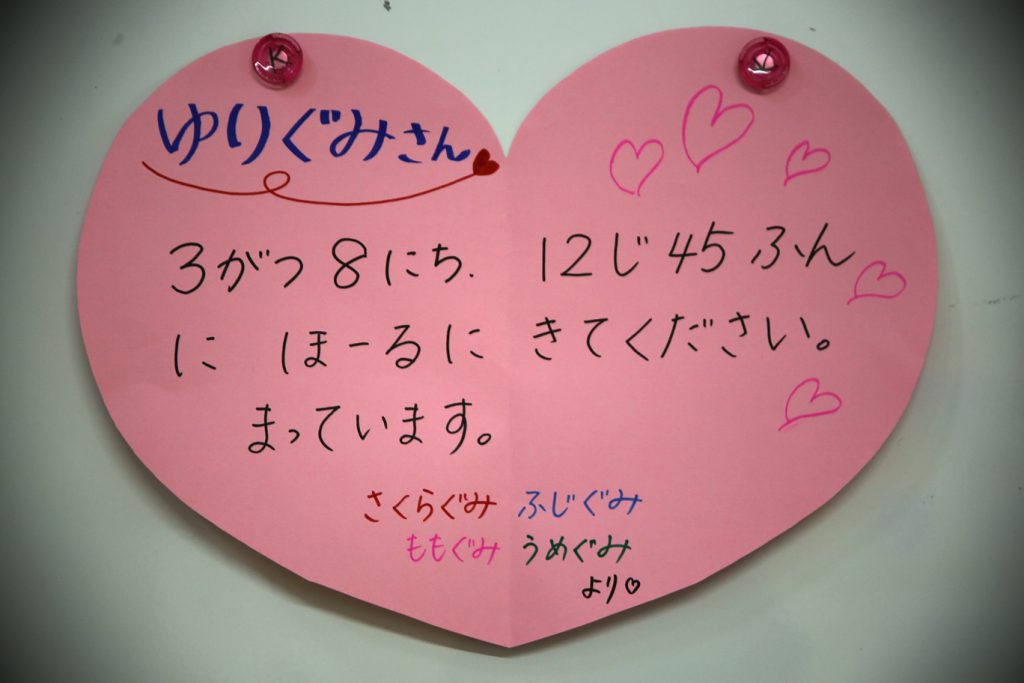 K
ゆりぐみさん
3がつ8にち. 12じ45ふん
に ほーるに きてください。
まっています。
さくらぐみ ふじぐみ
ももぐみ うめぐみ
より♡